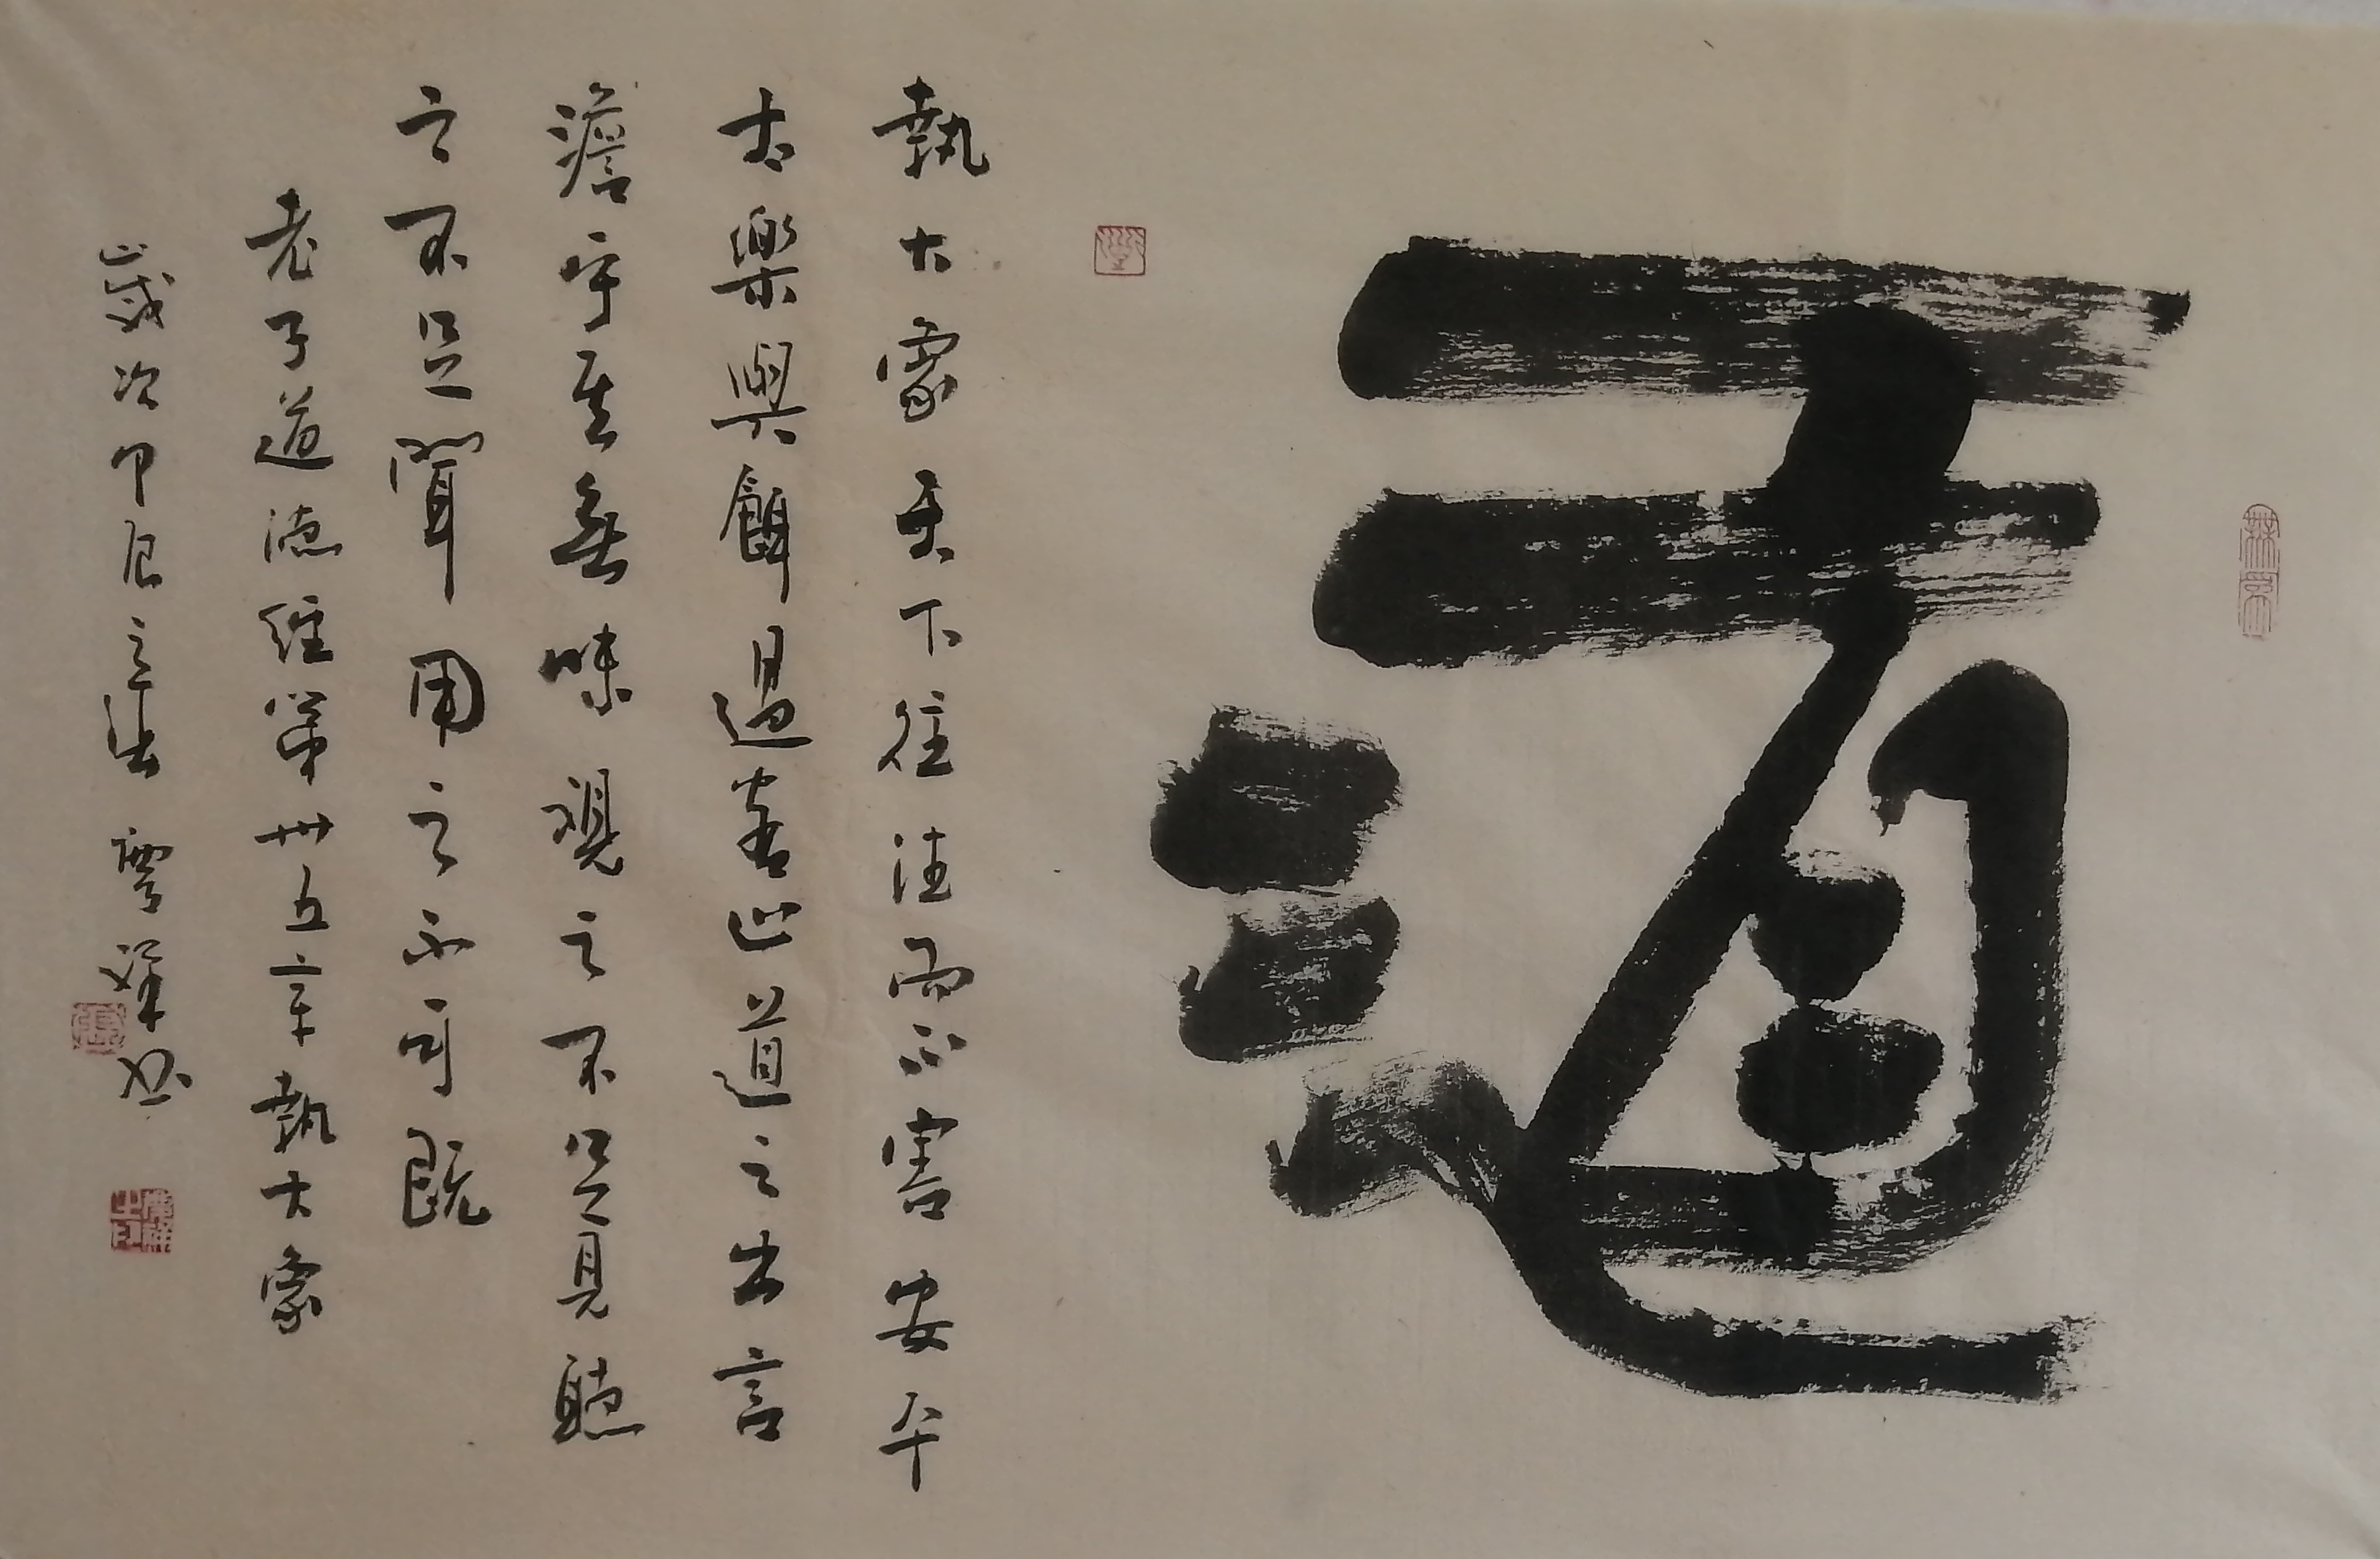 道
執大象天下往往而不害安平
太樂與餌過客止道之出言
澹乎其無味視之不足見聽
之不足聞用之不可既
老子道德經第卅五章執大象
歲次甲辰之